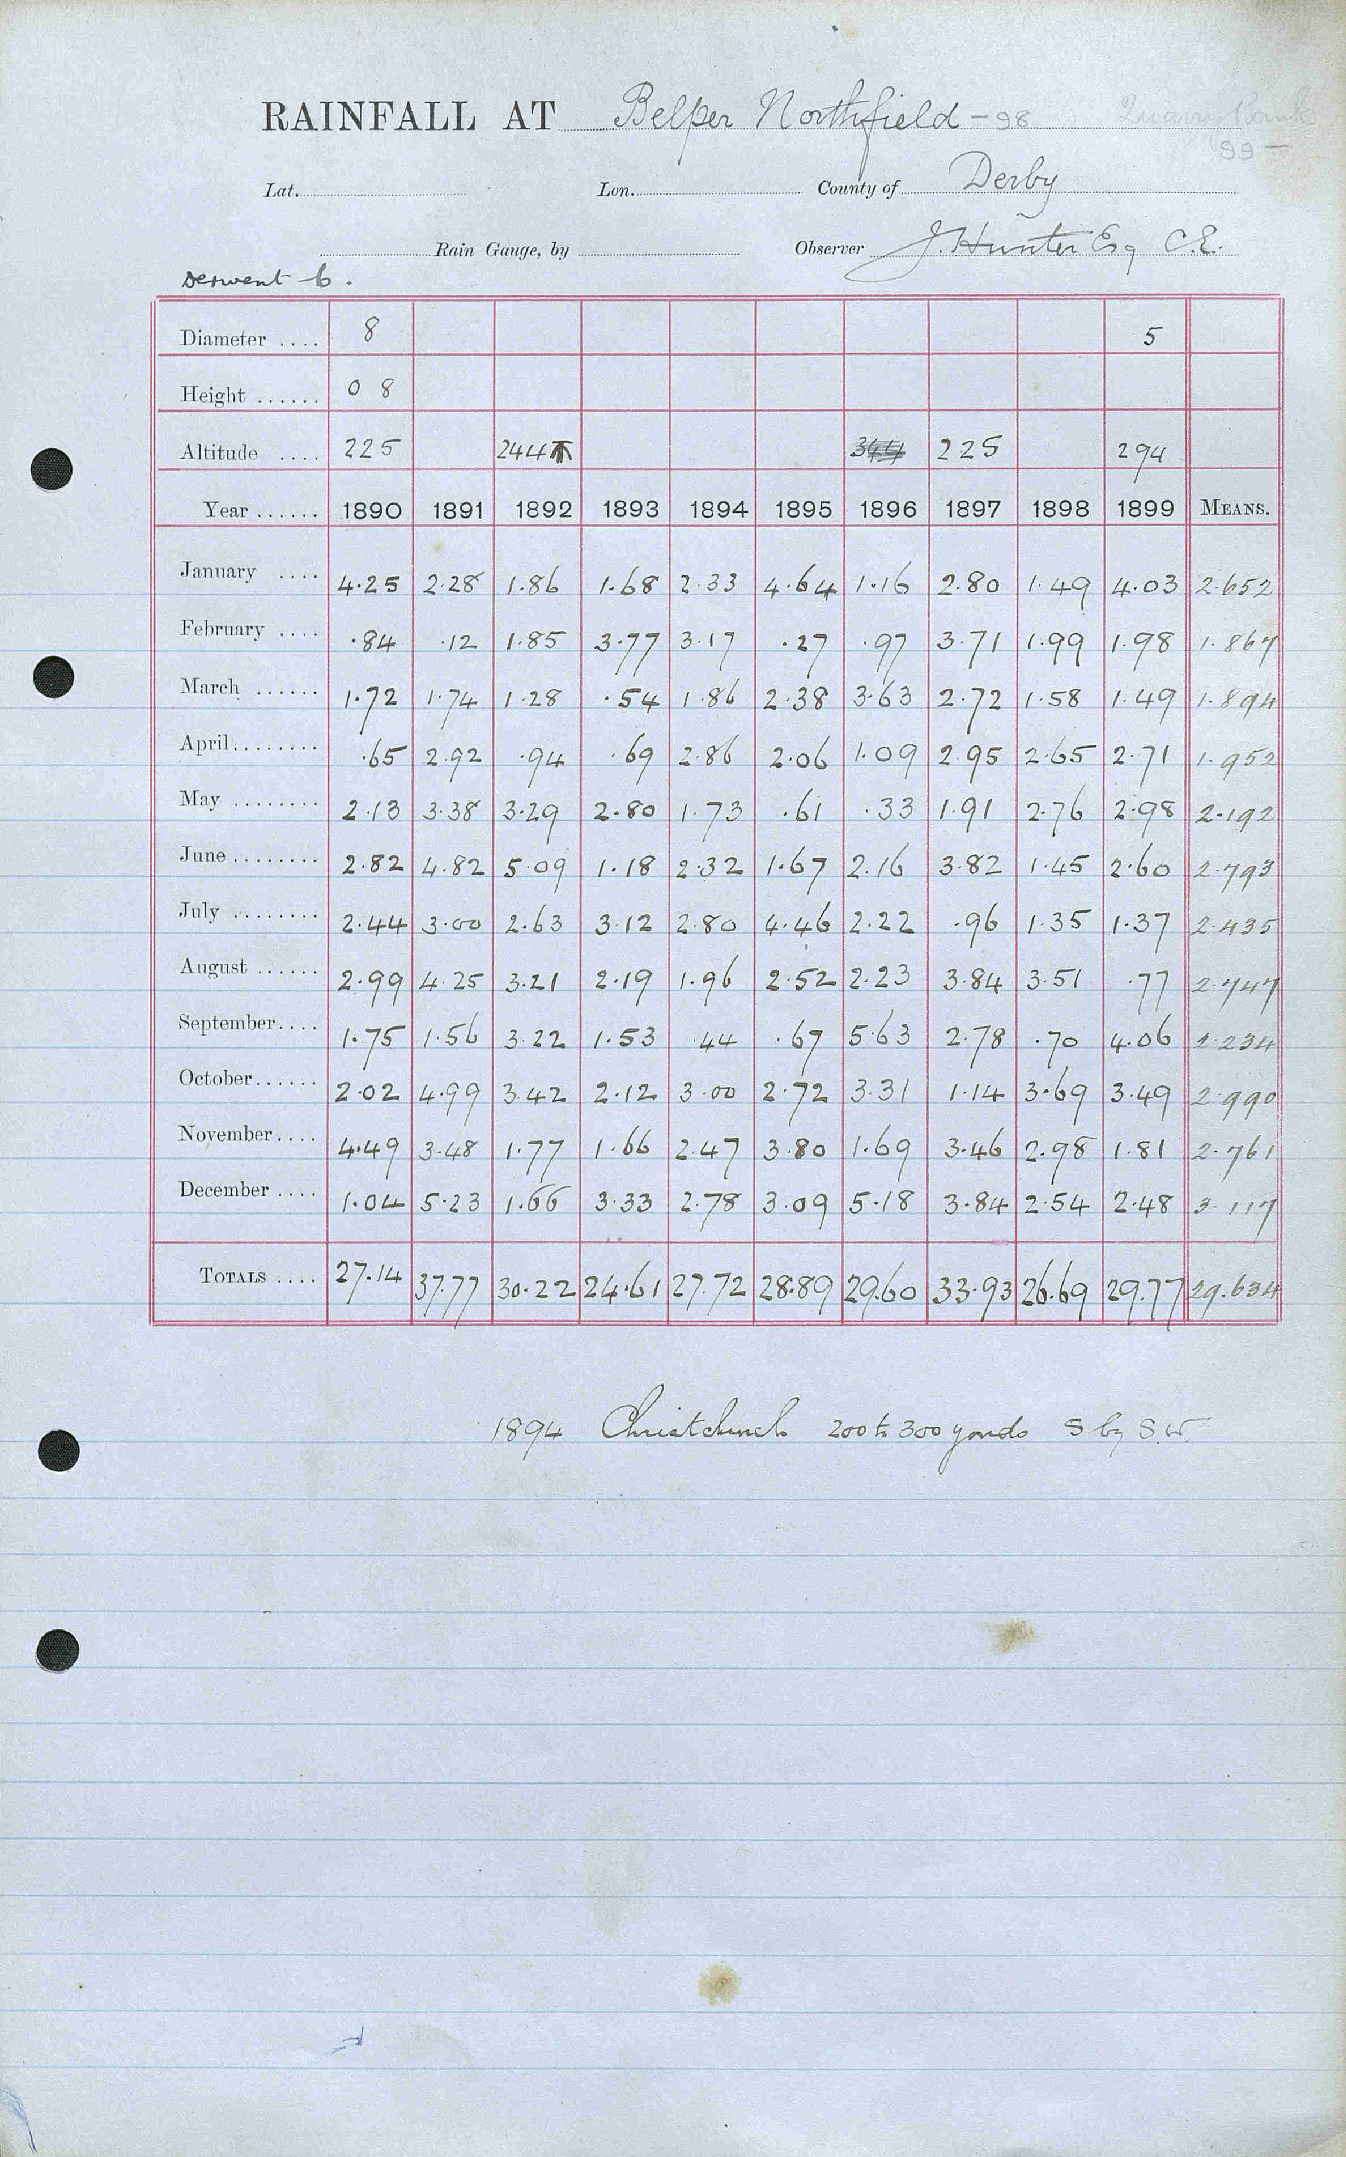 RAINFALL AT Belper Northfield -98 Quarry Bank
99-
Lat. Lon. County of Derby
Rain Gauge, by Observer J. Hunter Esq C.E.
Derwent b.
Diameter .... 8 5
Height ...... 0 8
Altitude .... 225 244T 344 225 294
Year ...... 1890 1891 1892 1893 1894 1895 1896 1897 1898 1899 MEANS.
January .... 4.25 2.28 1.86 1.68 2.33 4.64 1.16 2.80 1.49 4.03 2.652
February .... .84 .12 1.85 3.77 3.17 .27 .97 3.71 1.99 1.98 1.867
March ...... 1.72 1.74 1.28 .54 1.86 2.38 3.63 2.72 1.58 1.49 1.894
April........ .65 2.92 .94 .69 2.86 2.06 1.09 2.95 2.65 2.71 1.952
May ........ 2.13 3.38 3.29 2.80 1.73 .61 .33 1.91 2.76 2.98 2.192
June........ 2.82 4.82 5.09 1.18 2.32 1.67 2.16 3.82 1.45 2.60 2.793
July ........ 2.44 3.00 2.63 3.12 2.80 4.46 2.22 .96 1.35 1.37 2.435
August ...... 2.99 4.25 3.21 2.19 1.96 2.52 2.23 3.84 3.51 .77 2.747
September.... 1.75 1.56 3.22 1.53 .44 .67 5.63 2.78 .70 4.06 2.234
October...... 2.02 4.99 3.42 2.12 3.00 2.72 3.31 1.14 3.69 3.49 2.990
November.... 4.49 3.48 1.77 1.66 2.47 3.80 1.69 3.46 2.98 1.81 2.761
December .... 1.04 5.23 1.66 3.33 2.78 3.09 5.18 3.84 2.54 2.48 3.117
TOTALS .... 27.14 37.77 30.22 24.61 27.72 28.89 29.60 33.93 26.69 29.77 29.634
1894 Christchurch 200 to 300 yards S by S.W.